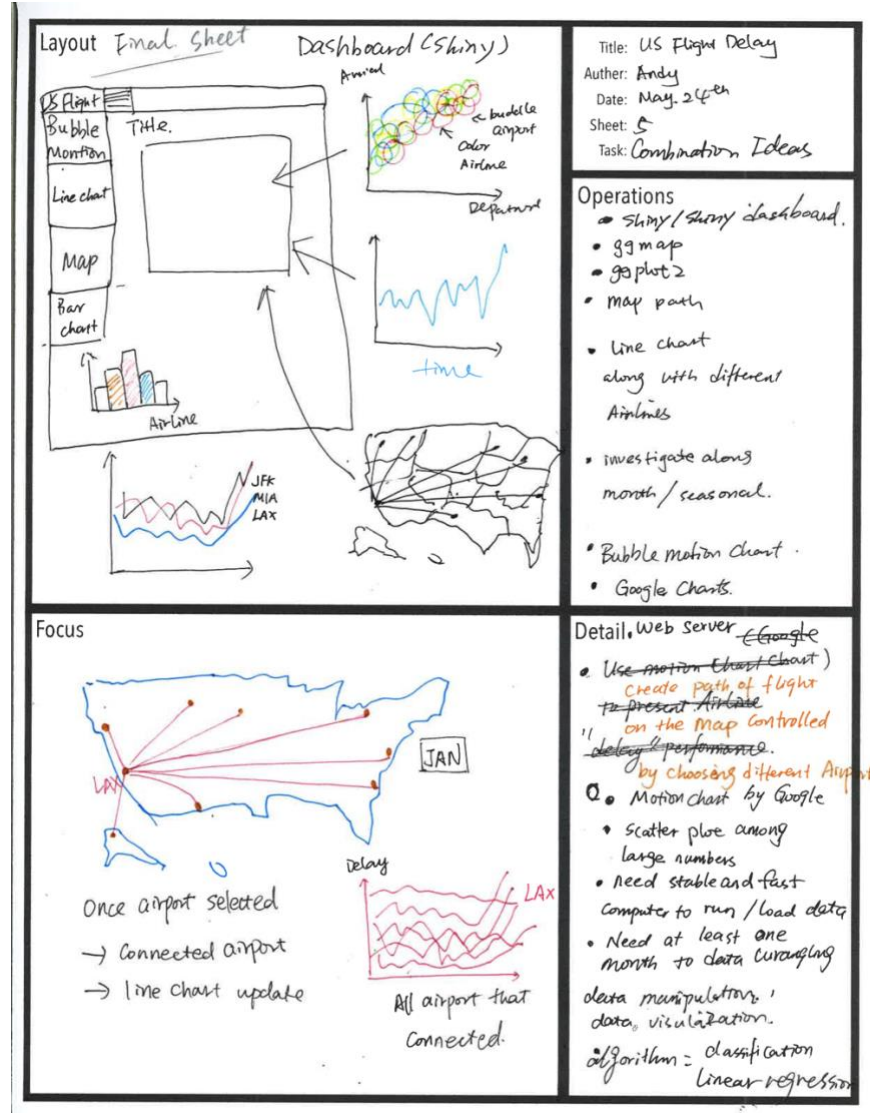 Layout Final Sheet
Dashboard (Shiny)
US Flight
Bubble
Montion
Title.
Line chart
Map
Bar
chart
Airline
Arrived
buddle
airport
Color
Airline
Departure
time
JFK
MIA
LAX
Title: US Flight Delay
Auther: Andy
Date: May. 24th
Sheet: 5
Task: Combination Ideas
Operations
• Shiny/shiny dashboard.
• ggmap
• ggplot2
• map path
• Line chart
along with different
Airlines
• investigate along
month/seasonal.
• Bubble motion Chart.
• Google Charts.
Focus
LAX
JAN
Once airport selected
→ Connected airport
→ line chart update
Delay
LAX
All airport that
Connected.
Detail. Web Server (Google
• Use motion Chart Chart)
Create path of flight
to present Airline
on the Map Controlled
"delay" performance.
by choosing different Airport
• Motion chart by Google
• Scatter plot among
large numbers
• need stable and fast
Computer to run/load data
• Need at least one
month to data
data manipulation,
data visulization.
algorithm = classification
linear regression